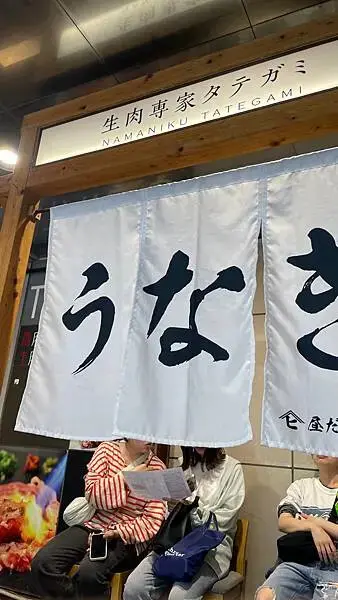 生肉専家タテガミ
NAMANIKU TATEGAMI
うなぎ
ヒ屋だ